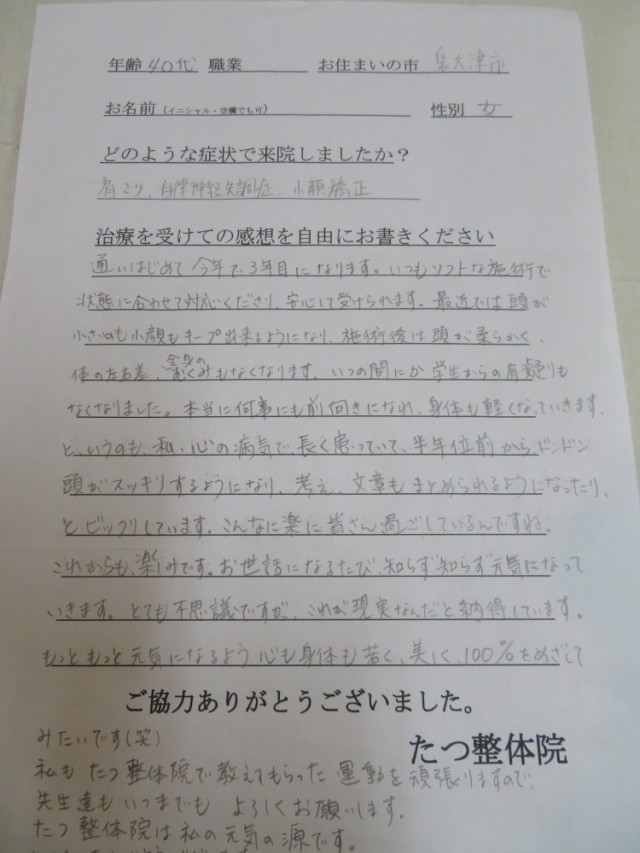 年齢 40代 職業 お住まいの市 泉大津市
お名前（イニシャル・空欄でも可） 性別 女
どのような症状で来院しましたか？
肩こり、自律神経失調症、小顔矯正
治療を受けての感想を自由にお書きください
通いはじめて今年で3年目になります。いつもソフトな施術で
状態に合わせて対応くださり、安心して受けられます。最近では頭が
小さいのも小顔もキープ出来るようになり、施術後は頭が柔らかく、
体の左右差、全身のむくみもなくなります。いつの間にか学生からの肩凝りも
なくなりました。本当に何事にも前向きになれ、身体も軽くなっていきます。
と、いうのも、私、心の病気で、長く患っていて、半年位前から、ドンドン
頭がスッキリするようになり、考え、文章もまとめられるようになったり、
とビックリしています。こんなに楽に皆さん過ごしているんですね。
これからも、楽しみです。お世話になるたび、知らず知らず元気になって
いきます。とても不思議ですが、これが現実なんだと納得しています。
もっともっと元気になるよう心も身体も若く、美しく、100%をめざして
ご協力ありがとうございました。
みたいです(笑)
たつ整体院
私もたつ整体院で教えてもらった運動を頑張りますので、
先生達もいつまでもよろしくお願いします。
たつ整体院は私の元気の源です。